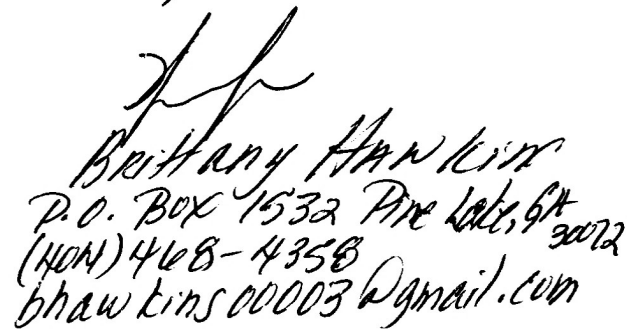 Brittany Hawkins
P.O. Box 1532 Pine Lake, GA
30072
(404) 468-4358
bhawkins00003@gmail.com